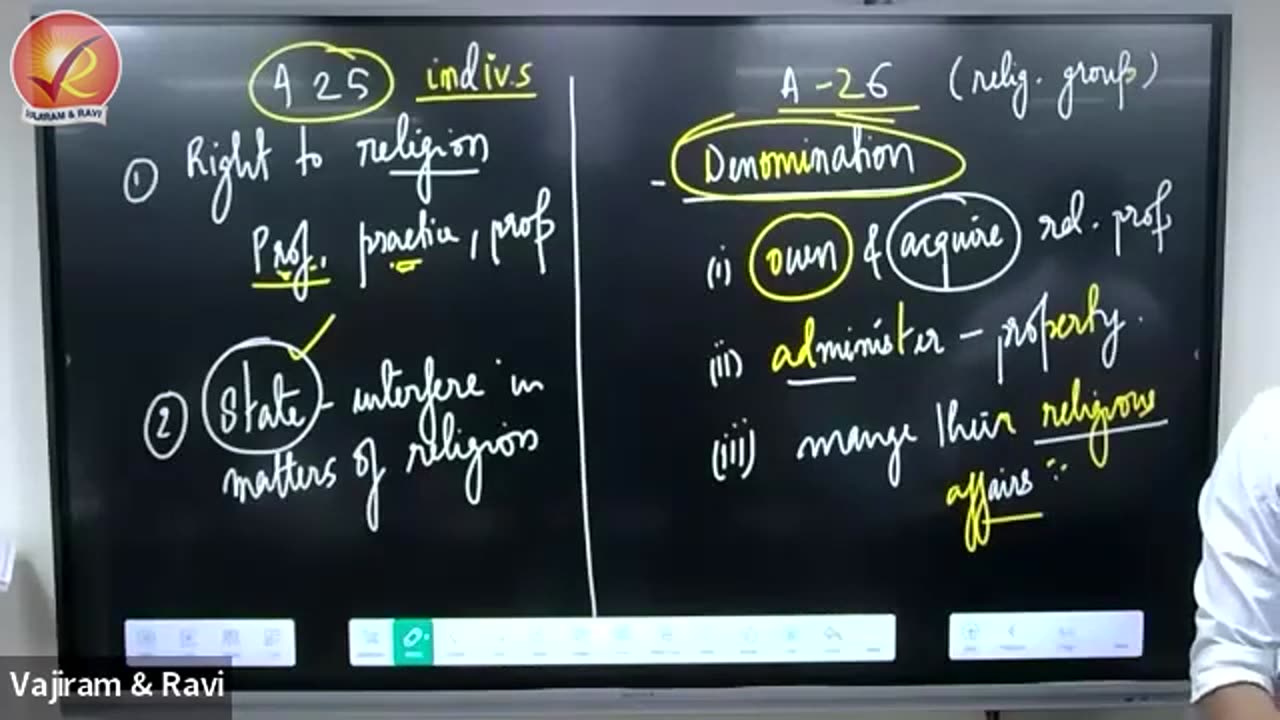 VAJIRAM & RAVI
A 25 indiv.s
① Right to religion
Prof, practice, prop
② State - interfere in
matters of religion
A - 26 (relig. groups)
- Denomination
(i) own & acquire rel. prop
(ii) administer - property.
(iii) mange their religious
affairs
Vajiram & Ravi